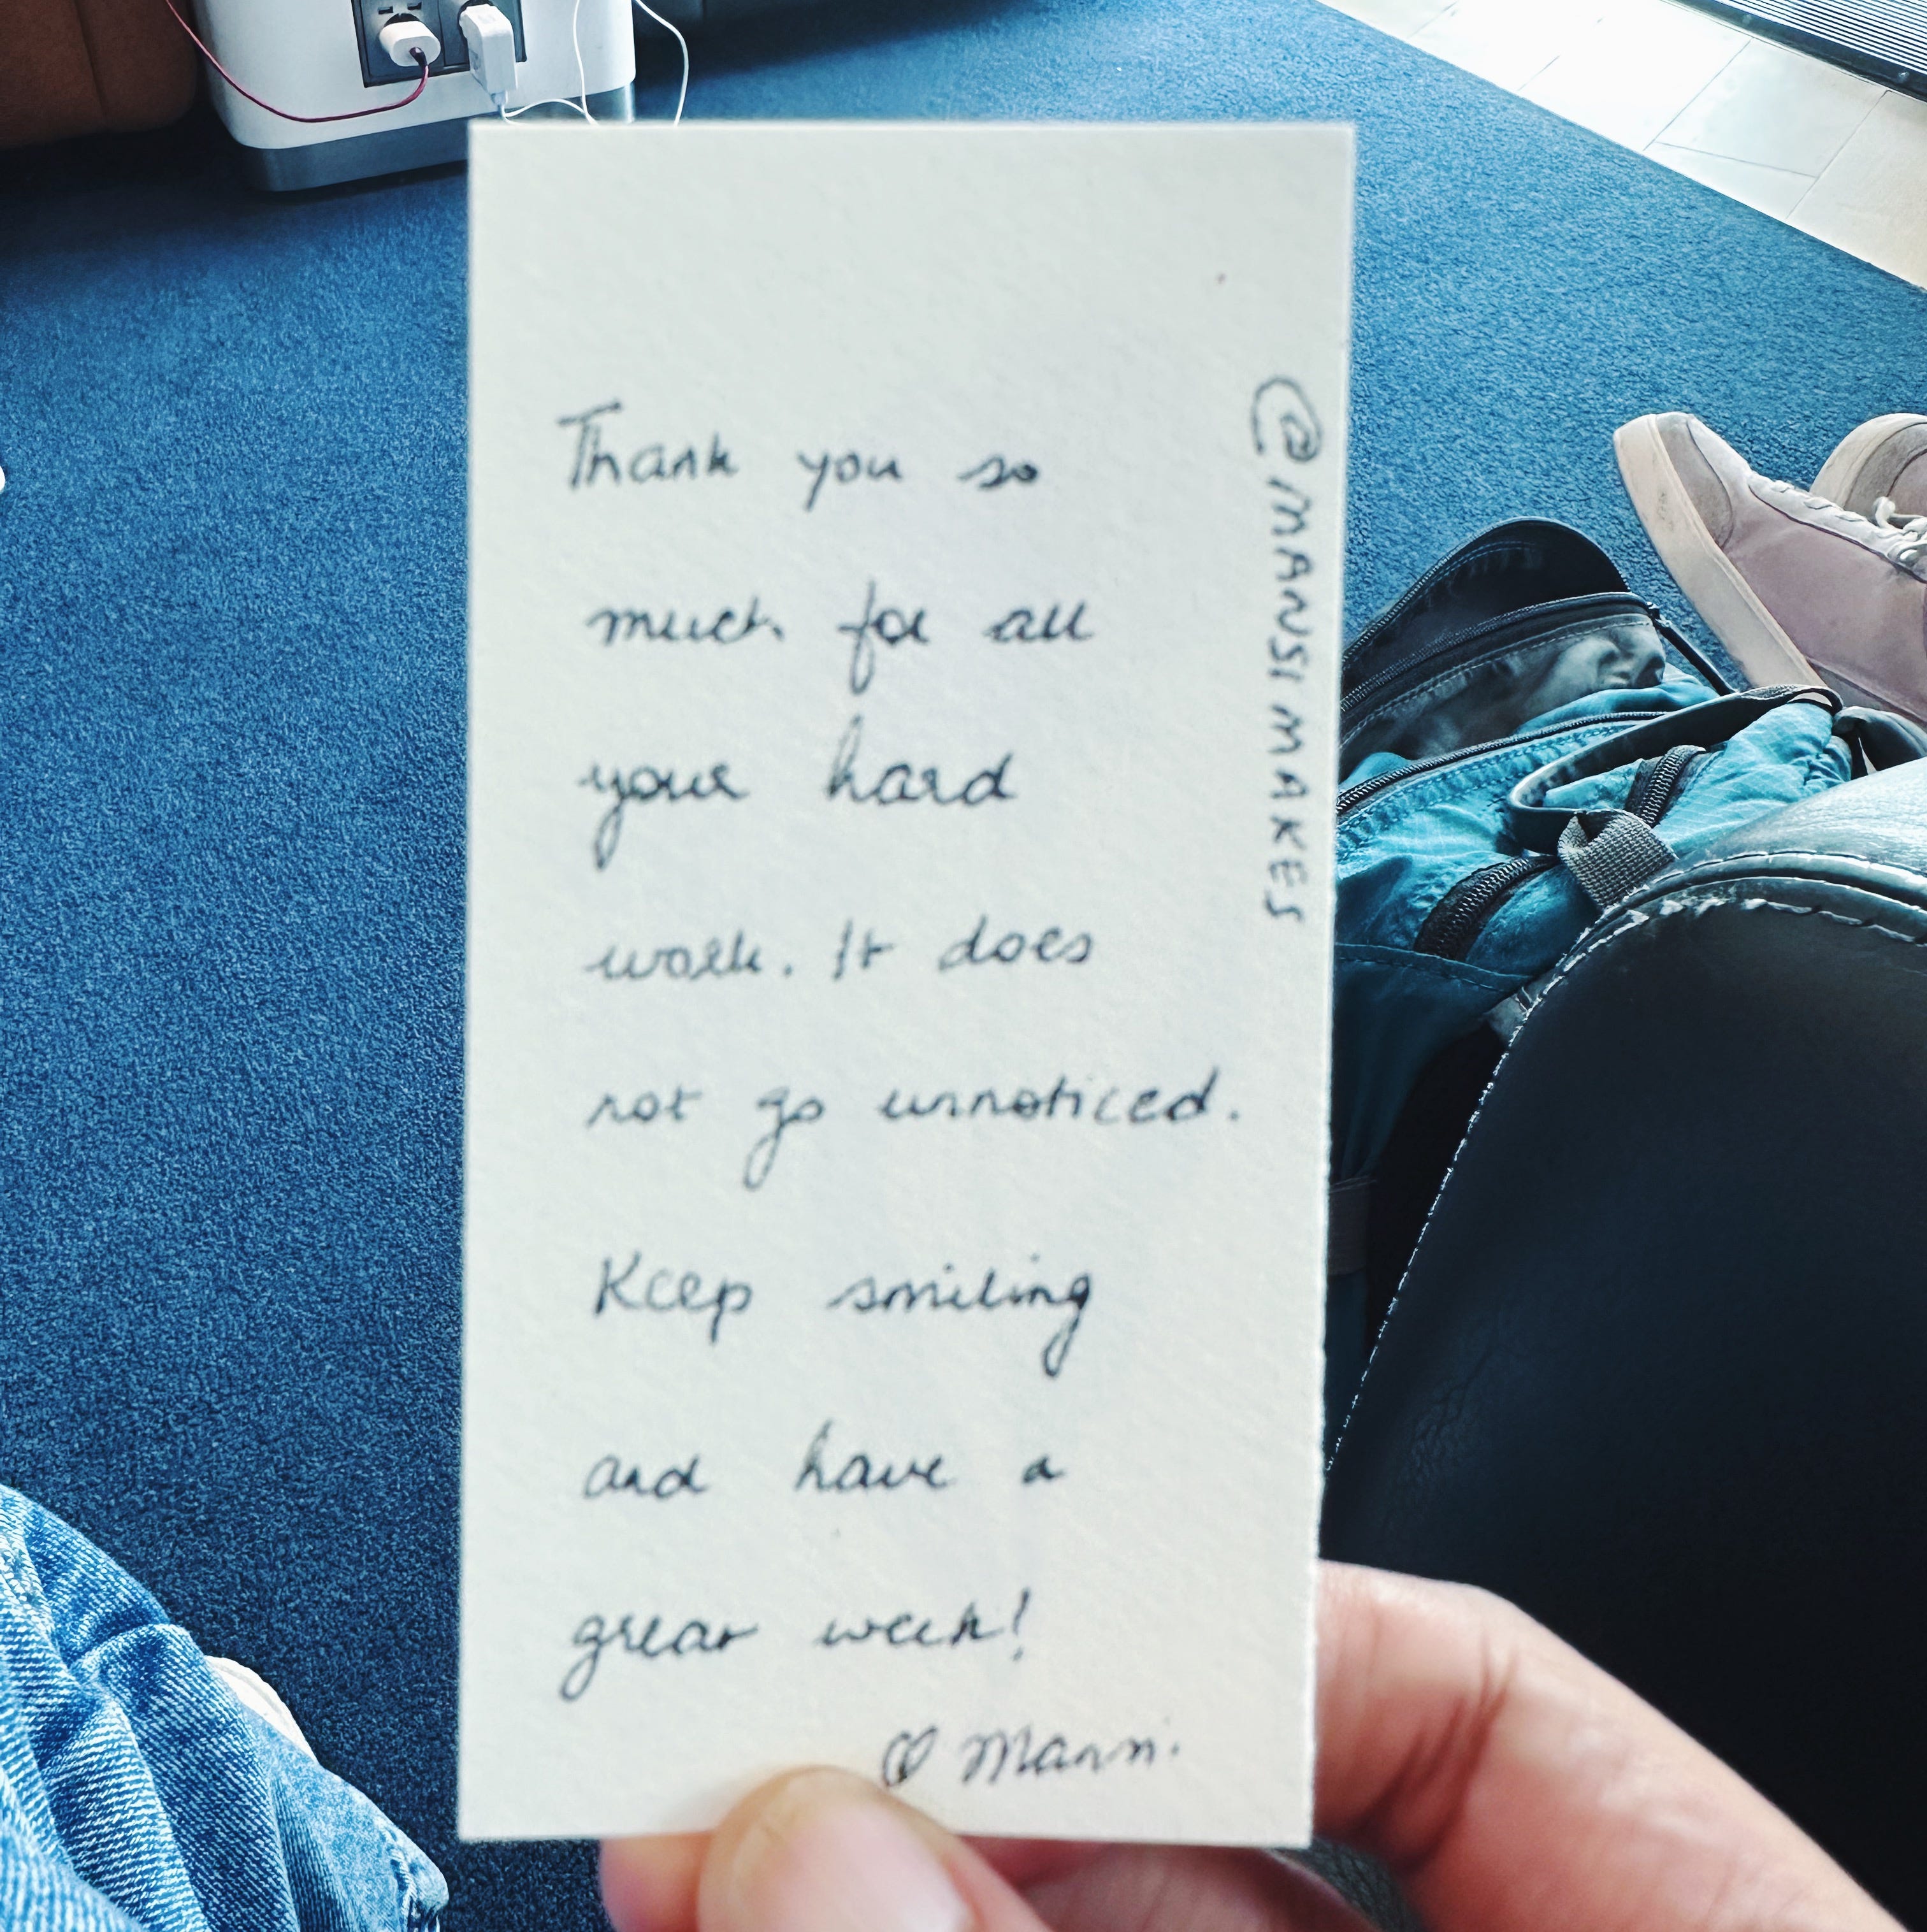 Thank you so
much for all
your hard
work. It does
not go unnoticed.
Keep smiling
and have a
great week!
♡ Mansi.
@MANSIMAKES